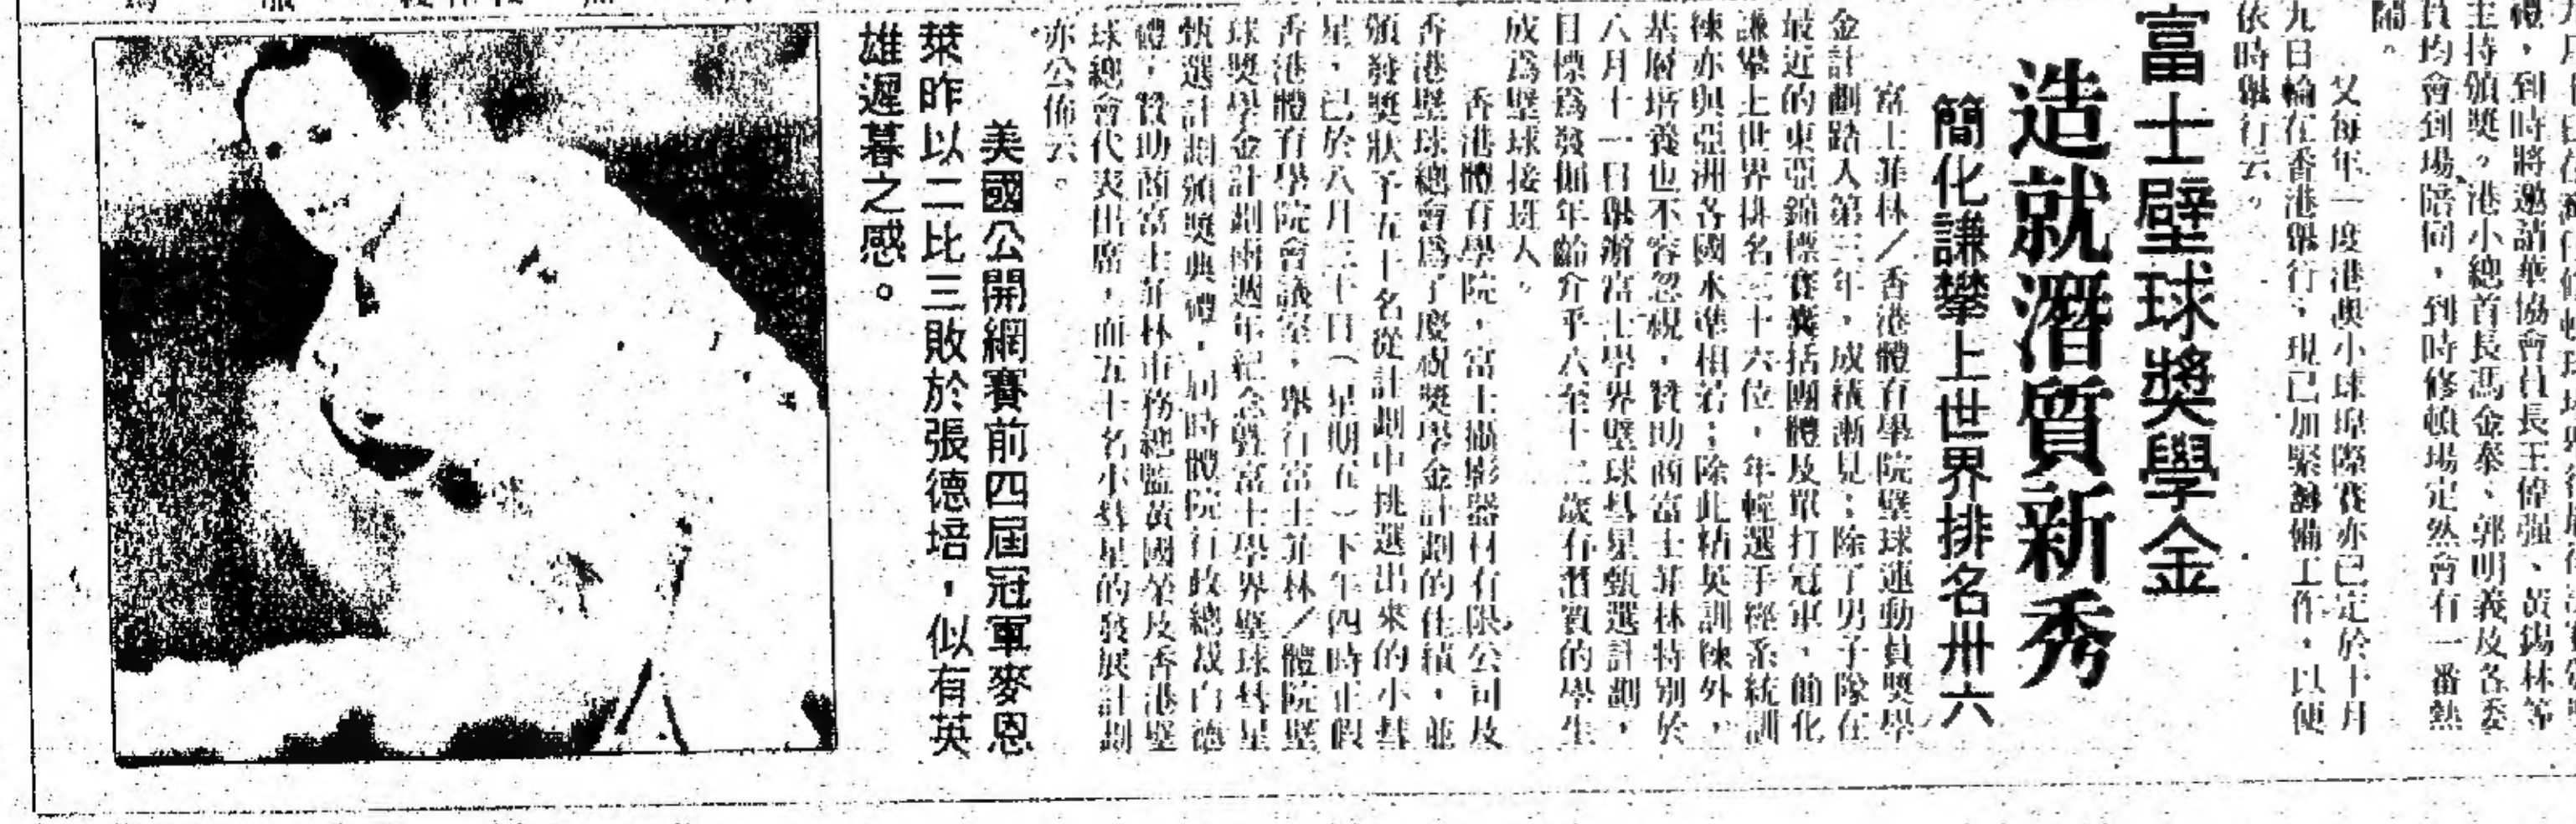 禮，到時將邀請華協會員長王偉强、黃錫林等
主持頒獎。港小總首長馮金泰、郭明義及各委
員均會到場陪同，到時修頓場定然會有一番熱
鬧。
又每年一度港澳小球埠際賽亦已定於十月
九日輪在香港舉行，現已加緊籌備工作，以便
依時舉行云。
富士壁球獎學金
造就潛質新秀
簡化謙攀上世界排名卅六
富士菲林／香港體育學院壁球運動員獎學
金計劃踏入第三年，成積漸見；除了男子隊在
最近的東亞錦標賽囊括團體及單打冠軍，簡化
謙攀上世界排名三十六位，年輕選手經系統訓
練亦與亞洲各國水準相若；除此精英訓練外，
基層培養也不容忽視，贊助商富士菲林特別於
八月十一日舉辦富士學界壁球彗星甄選計劃，
目標爲發掘年齡介乎八至十二歲有潛質的學生
成爲壁球接班人。
香港體育學院，富士攝影器材有限公司及
香港壁球總會爲了慶祝獎學金計劃的佳積，並
頒發獎狀予五十名從計劃中挑選出來的小彗
星，已於八月三十日（星期五）下午四時正假
香港體育學院會議室，舉行富士菲林／體院壁
球獎學金計劃兩週年紀念暨富士學界壁球彗星
甄選計劃頒獎典禮，屆時體院行政總裁白德
禮，贊助商富士菲林市務總監黃國榮及香港壁
球總會代表出席，而五十名小彗星的發展計劃
亦公佈云。
美國公開網賽前四屆冠軍麥恩
萊昨以二比三敗於張德培，似有英
雄遲暮之感。